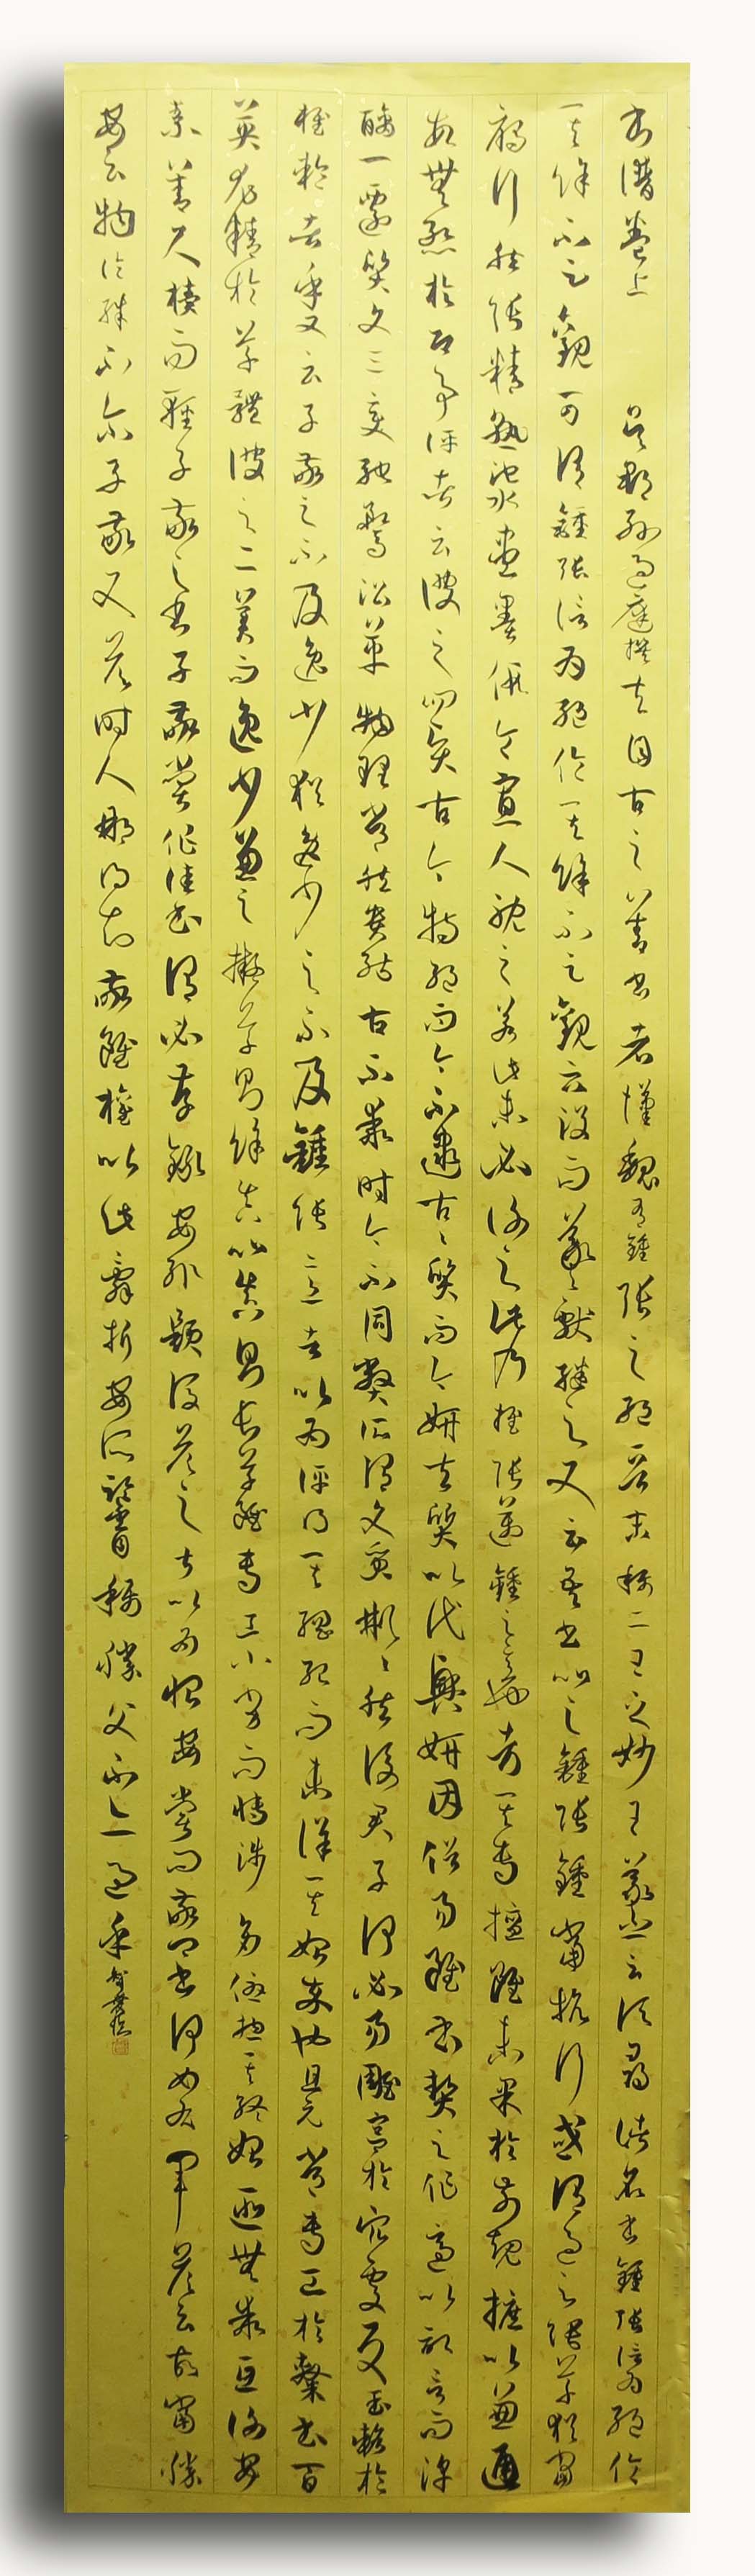 書譜卷上 吳郡孫過庭撰夫自古之善書者漢魏有鍾張之絕晉末稱二王之妙王羲之云頃尋諸名書鍾張信為絕倫
其餘不足觀可謂鍾張信為絕倫其餘不足觀云沒而羲獻繼之又云吾書比之鍾張鍾當抗行或謂過之張草猶當
雁行然張精熟池水盡墨假令寡人耽之若此未必謝之此乃推張邁鍾之意也考其專擅雖未果於前規摭以兼通
故無慙於即事評者云彼之四賢古今特絕而今不逮古〻質而今妍夫質以代興妍因俗易雖書契之作適以記言而淳
醨一遷質文三變馳騖沿革物理常然貴能古不乖時今不同弊所謂文質彬〻然後君子何必易雕宮於穴處反玉輅於
椎輪者乎又云子敬之不及逸少猶逸少之不及鍾張意者以為評得其綱紀而未詳其始卒也且元常專工於隸書百
英尤精於草體彼之二美而逸少兼之擬草則餘真比真則長草雖專工小劣而博涉多優揔其終始匪無乖互謝安
素善尺牘而輕子敬之書子敬嘗作佳書謂必存錄安輒題後答之甚以為恨安嘗問敬卿書何如右軍答云故當勝
安云物論殊不爾子敬又答時人那得知敬雖權以此辭折安所鑒自稱勝父不亦過乎